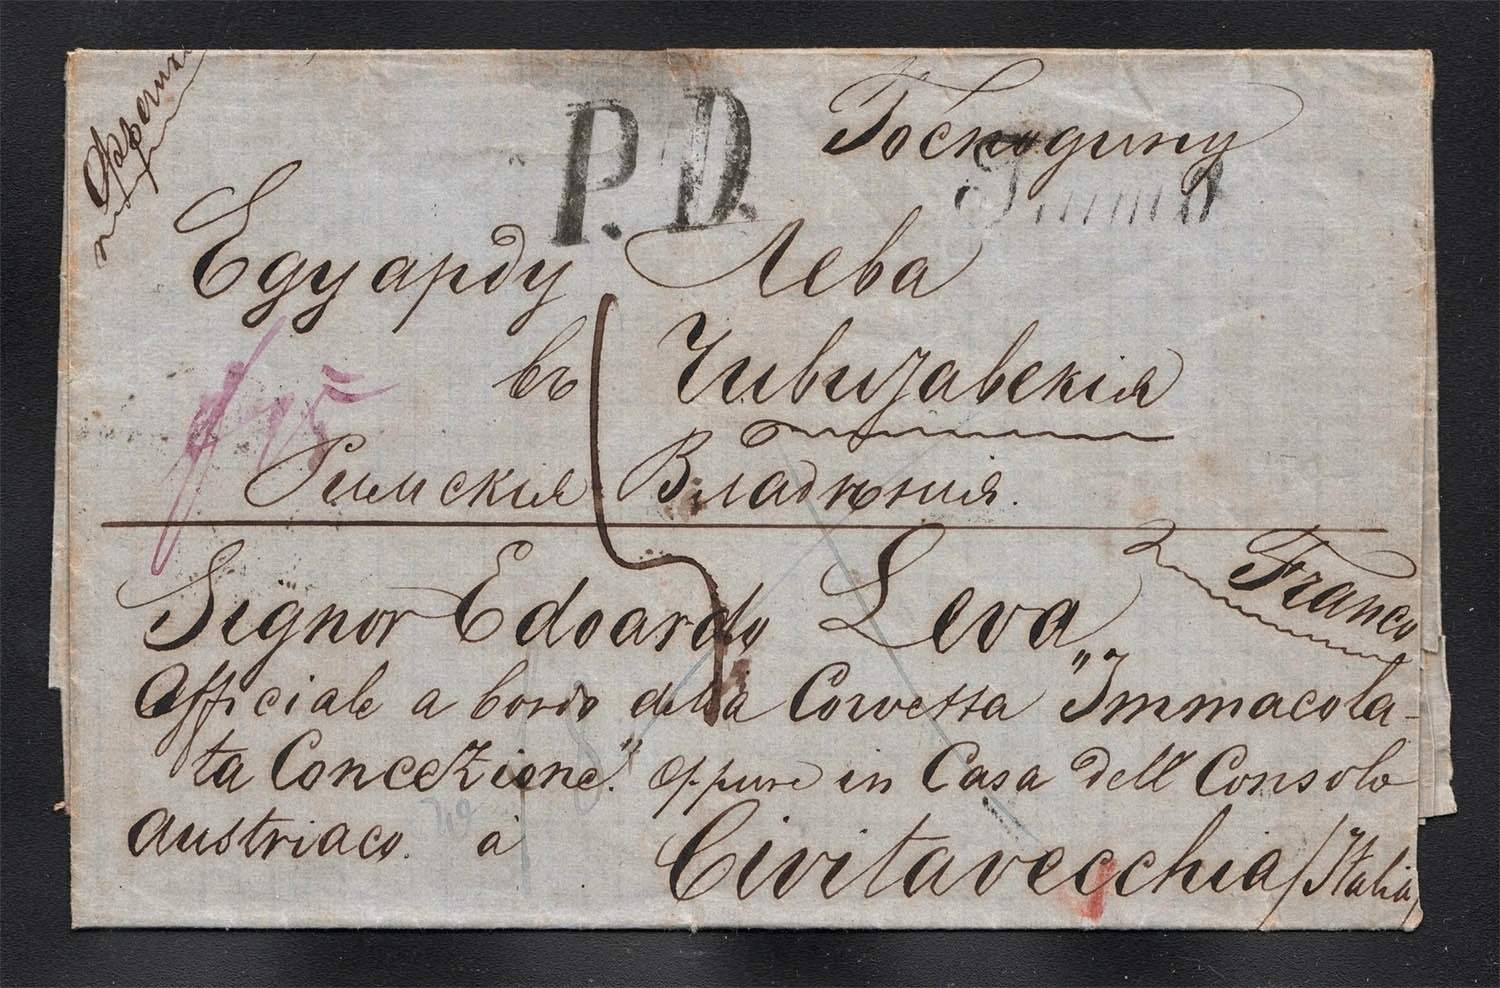 P.D.
Господину
Едуарду Лева
въ Чивизавекія
Римскія Владѣнія.
Franco
Signor Edoardo Leva
Officiale a bordo della Corvetta „Immacola-
ta Concezione" oppure in Casa dell Console
Austriaco. à
Civitavecchia /Italia/